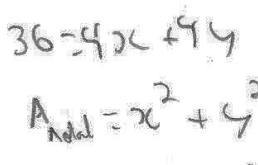 36 = 4x + 4y
A_total = x² + y²